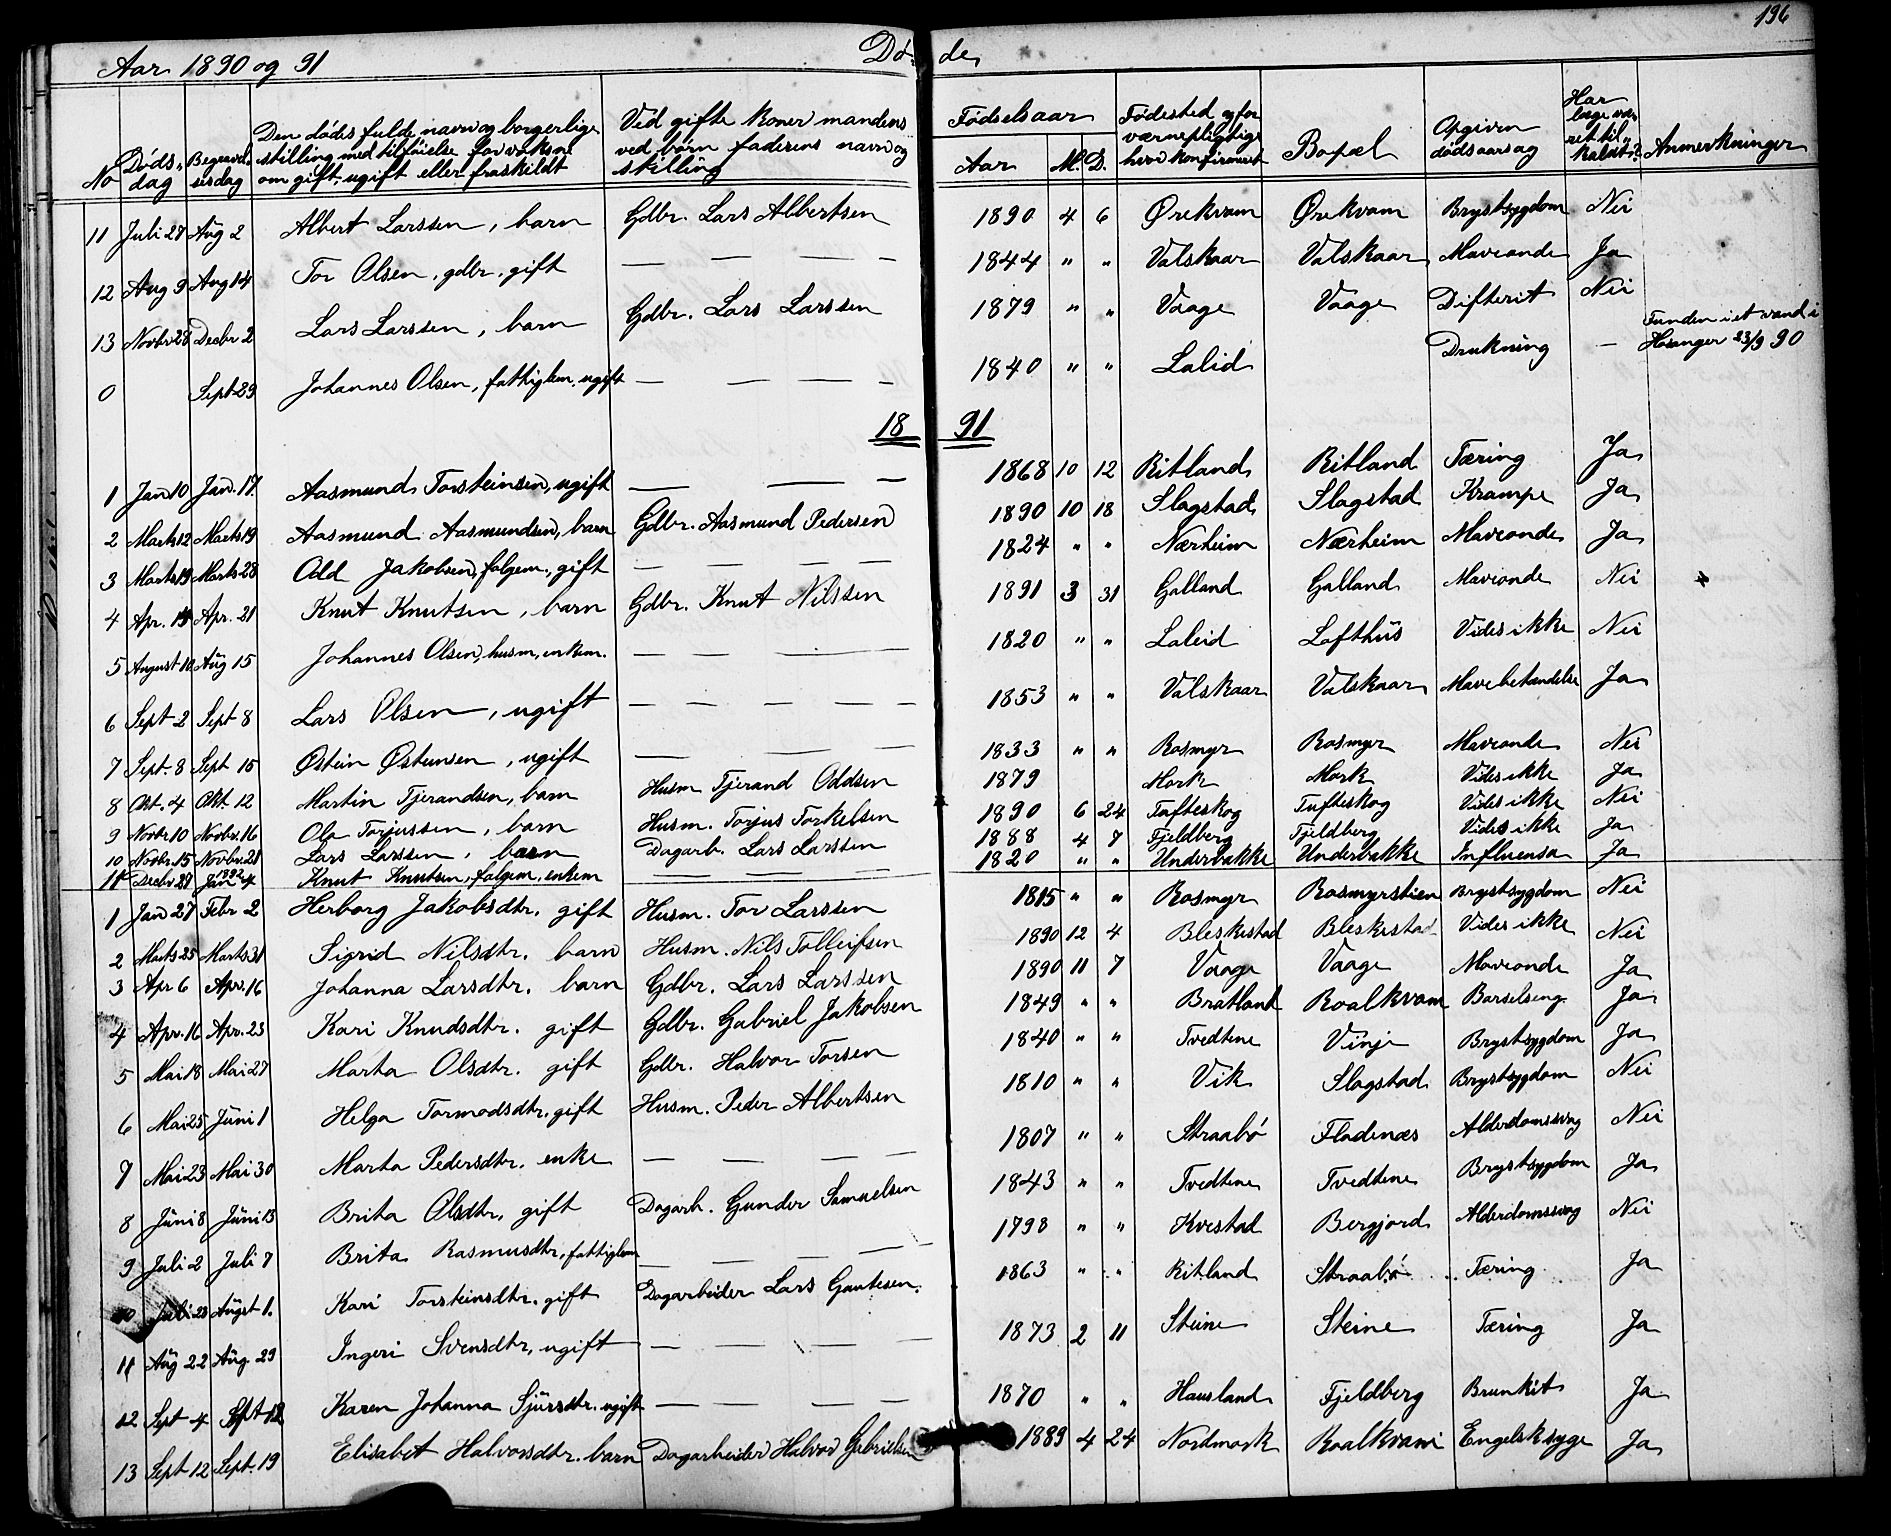 196
Aar 1890 og 91 Dø- de
No Døds-dag Begravel-sesdag Den dødes fulde navn og borgerlige stilling med tilføielse for voksne om gift, ugift eller fraskildt Ved gifte koner mandens ved børn faderens navn og stilling Fødselsaar Aar M. D. Fødested og for værnepligtige hvor konfirmeret Bopæl Opgiven dødsaarsag Har læge været tilkaldt? Anmerkninger
11 Juli 27 Aug 2 Albert Larssen, barn Gdbr. Lars Albertsen 1890 4 6 Ørekvam Ørekvam Brystsygdom Nei
12 Aug 9 Aug 14 Tor Olsen, gdbr, gift — — — — 1844 " " Valskaar Valskaar Maveonde Ja
13 Novbr 28 Decbr 2 Lars Larssen, barn Gdbr. Lars Larssen 1879 " " Vaage Vaage Difterit Nei
0 Sept 29 Johannes Olsen, fattiglem, ugift — — — — 1840 " " Laleid Drukning — Funden i et vand i Hosanger 23/9 90
18 91
1 Jan 10 Jan. 17. Aasmund Torsteinsen, ugift — — — 1868 10 12 Ritland Ritland Tæring Ja
2 Marts 12 Marts 19 Aasmund Aasmundsen, barn Gdbr. Aasmund Pedersen 1890 10 18 Slagstad Slagstad Krampe Ja
3 Marts 19 Marts 28 Odd Jakobsen, folgem., gift — — — — 1824 " " Nærheim Nærheim Maveonde Ja
4 Apr. 19 Apr. 21 Knut Knutsen, barn Gdbr. Knut Nilssen 1891 3 31 Galland Galland Maveonde Nei
5 August 10 Aug 15 Johannes Olsen, husm, enkem. — — — 1820 " " Laleid Lofthus Vides ikke Nei
6 Sept 2 Sept 8 Lars Olsen, ugift — — — — — 1853 " " Valskaar Valskaar Mavebetændelse Ja
7 Sept. 8 Sept 15 Østein Østeinsen, ugift — — — 1833 " " Rosmyr Rosmyr Maveonde Nei
8 Okt. 4 Okt. 12 Martin Tjerandsen, barn Husm Tjerand Oddsen 1879 Mork Mork Vides ikke Ja
9 Novbr. 10 Novbr. 16 Ola Torjussen, barn Husm. Torjus Torkelsen 1890 6 24 Tufteskog Tufteskog Vides ikke Nei
10 Novbr. 15 Novbr. 21 Lars Larssen, barn Dagarb. Lars Larssen 1888 4 7 Fjeldberg Fjeldberg Vides ikke Ja
11 Decbr 29 1892 Jan 4 Knut Knutsen, folgem, enkem — — — — 1820 " " Underbakke Underbakke Influensa Ja
1 Jan 27 Febr 2 Herborg Jakobsdtr. gift Husm. Tor Larssen 1815 " " Rosmyr Rosmyrstien Brystsygdom Nei
2 Marts 25 Marts 31 Sigrid Nilsdtr. barn Husm. Nils Tolleifsen 1890 12 4 Bleskestad Bleskestad Vides ikke Nei
3 Apr 6 Apr. 16 Johanna Larsdtr. barn Gdbr. Lars Larssen 1890 11 7 Vaage Vaage Maveonde Ja
4 Apr. 16 Apr. 23 Kari Knudsdtr. gift Gdbr. Gabriel Jakobsen 1849 " " Bratland Roalkvam Barselseng. Ja
5 Mai 18 Mai 27 Marta Olsdtr. gift Gdbr. Halvor Torsen 1840 " " Tvedtene Vinje Brystsygdom Ja
6 Mai 25 Juni 1 Helga Tormodsdtr. gift Husm. Peder Albertsen 1810 " " Vik Slagstad Brystsygdom Nei
7 Mai 23 Mai 30 Marta Pedersdtr. enke — — — — 1807 " " Straabø Fladenæs Alderdomssvag Nei
8 Juni 8 Juni 13 Brita Olsdtr, gift Dagarb. Gunder Samuelsen 1843 " " Tvedtene Tvedtene Brystsygdom Ja
9 Juli 2 Juli 7 Brita Rasmusdtr, fattiglem — — — — 1798 " " Kvestad Bergjord Alderdomssvag Nei
10 Juli 23 August 1. Kari Torsteinsdtr. gift Dagarbeider Lars Gautesen. 1863 " " Ritland Straabø Tæring Ja
11 Aug 22 Aug. 29 Ingeri Svensdtr, ugift — — — — 1873 2 11 Steine Steine Tæring Ja
12 Sept 4 Sept 12 Karen Johanna Sjursdtr. ugift — — — — 1870 " " Hausland Fjeldberg Brunkit Ja
13 Sept 12 Sept. 19 Elisabet Halvorsdtr. barn Dagarbeider Halvor Gabrielsen 1889 4 24 Nordmork Roalkvam Engelsksyge Ja